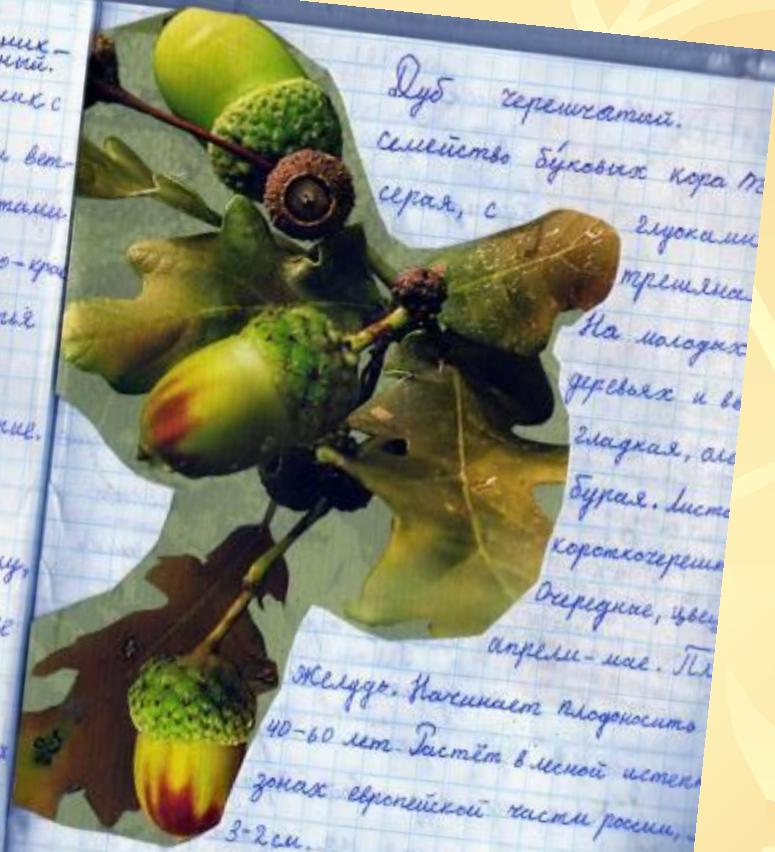 ных-
ный.
ник с
вет-
тами
о-кра
тья
ние.
Дуб черешчатый.
семейство бу́ковых кора т
серая, с глуокими
трешяна
На молодых
деревьях и в
гладкая, ол
бурая. Лист
короткочереш
Очередные, цве
апрели-мае. Пл
Желудь. Начинает плодоносить
40-60 лет. Растёт в лесной истеп
зонах европейской части россии,
3-2 см.